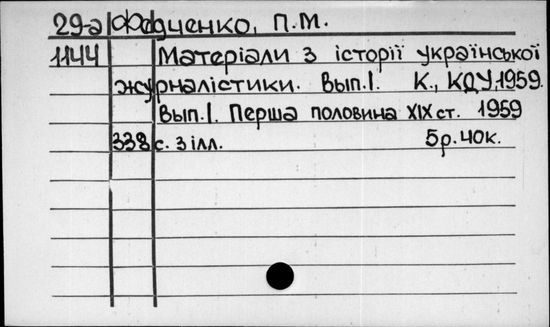 29-а Федченко, П.М.
1144 Матеріали з історії української
журналістики. Вып.I. К., КДУ, 1959.
Вып.I. Перша половина XIX ст. 1959
338 с. з ілл. 5р. 40к.